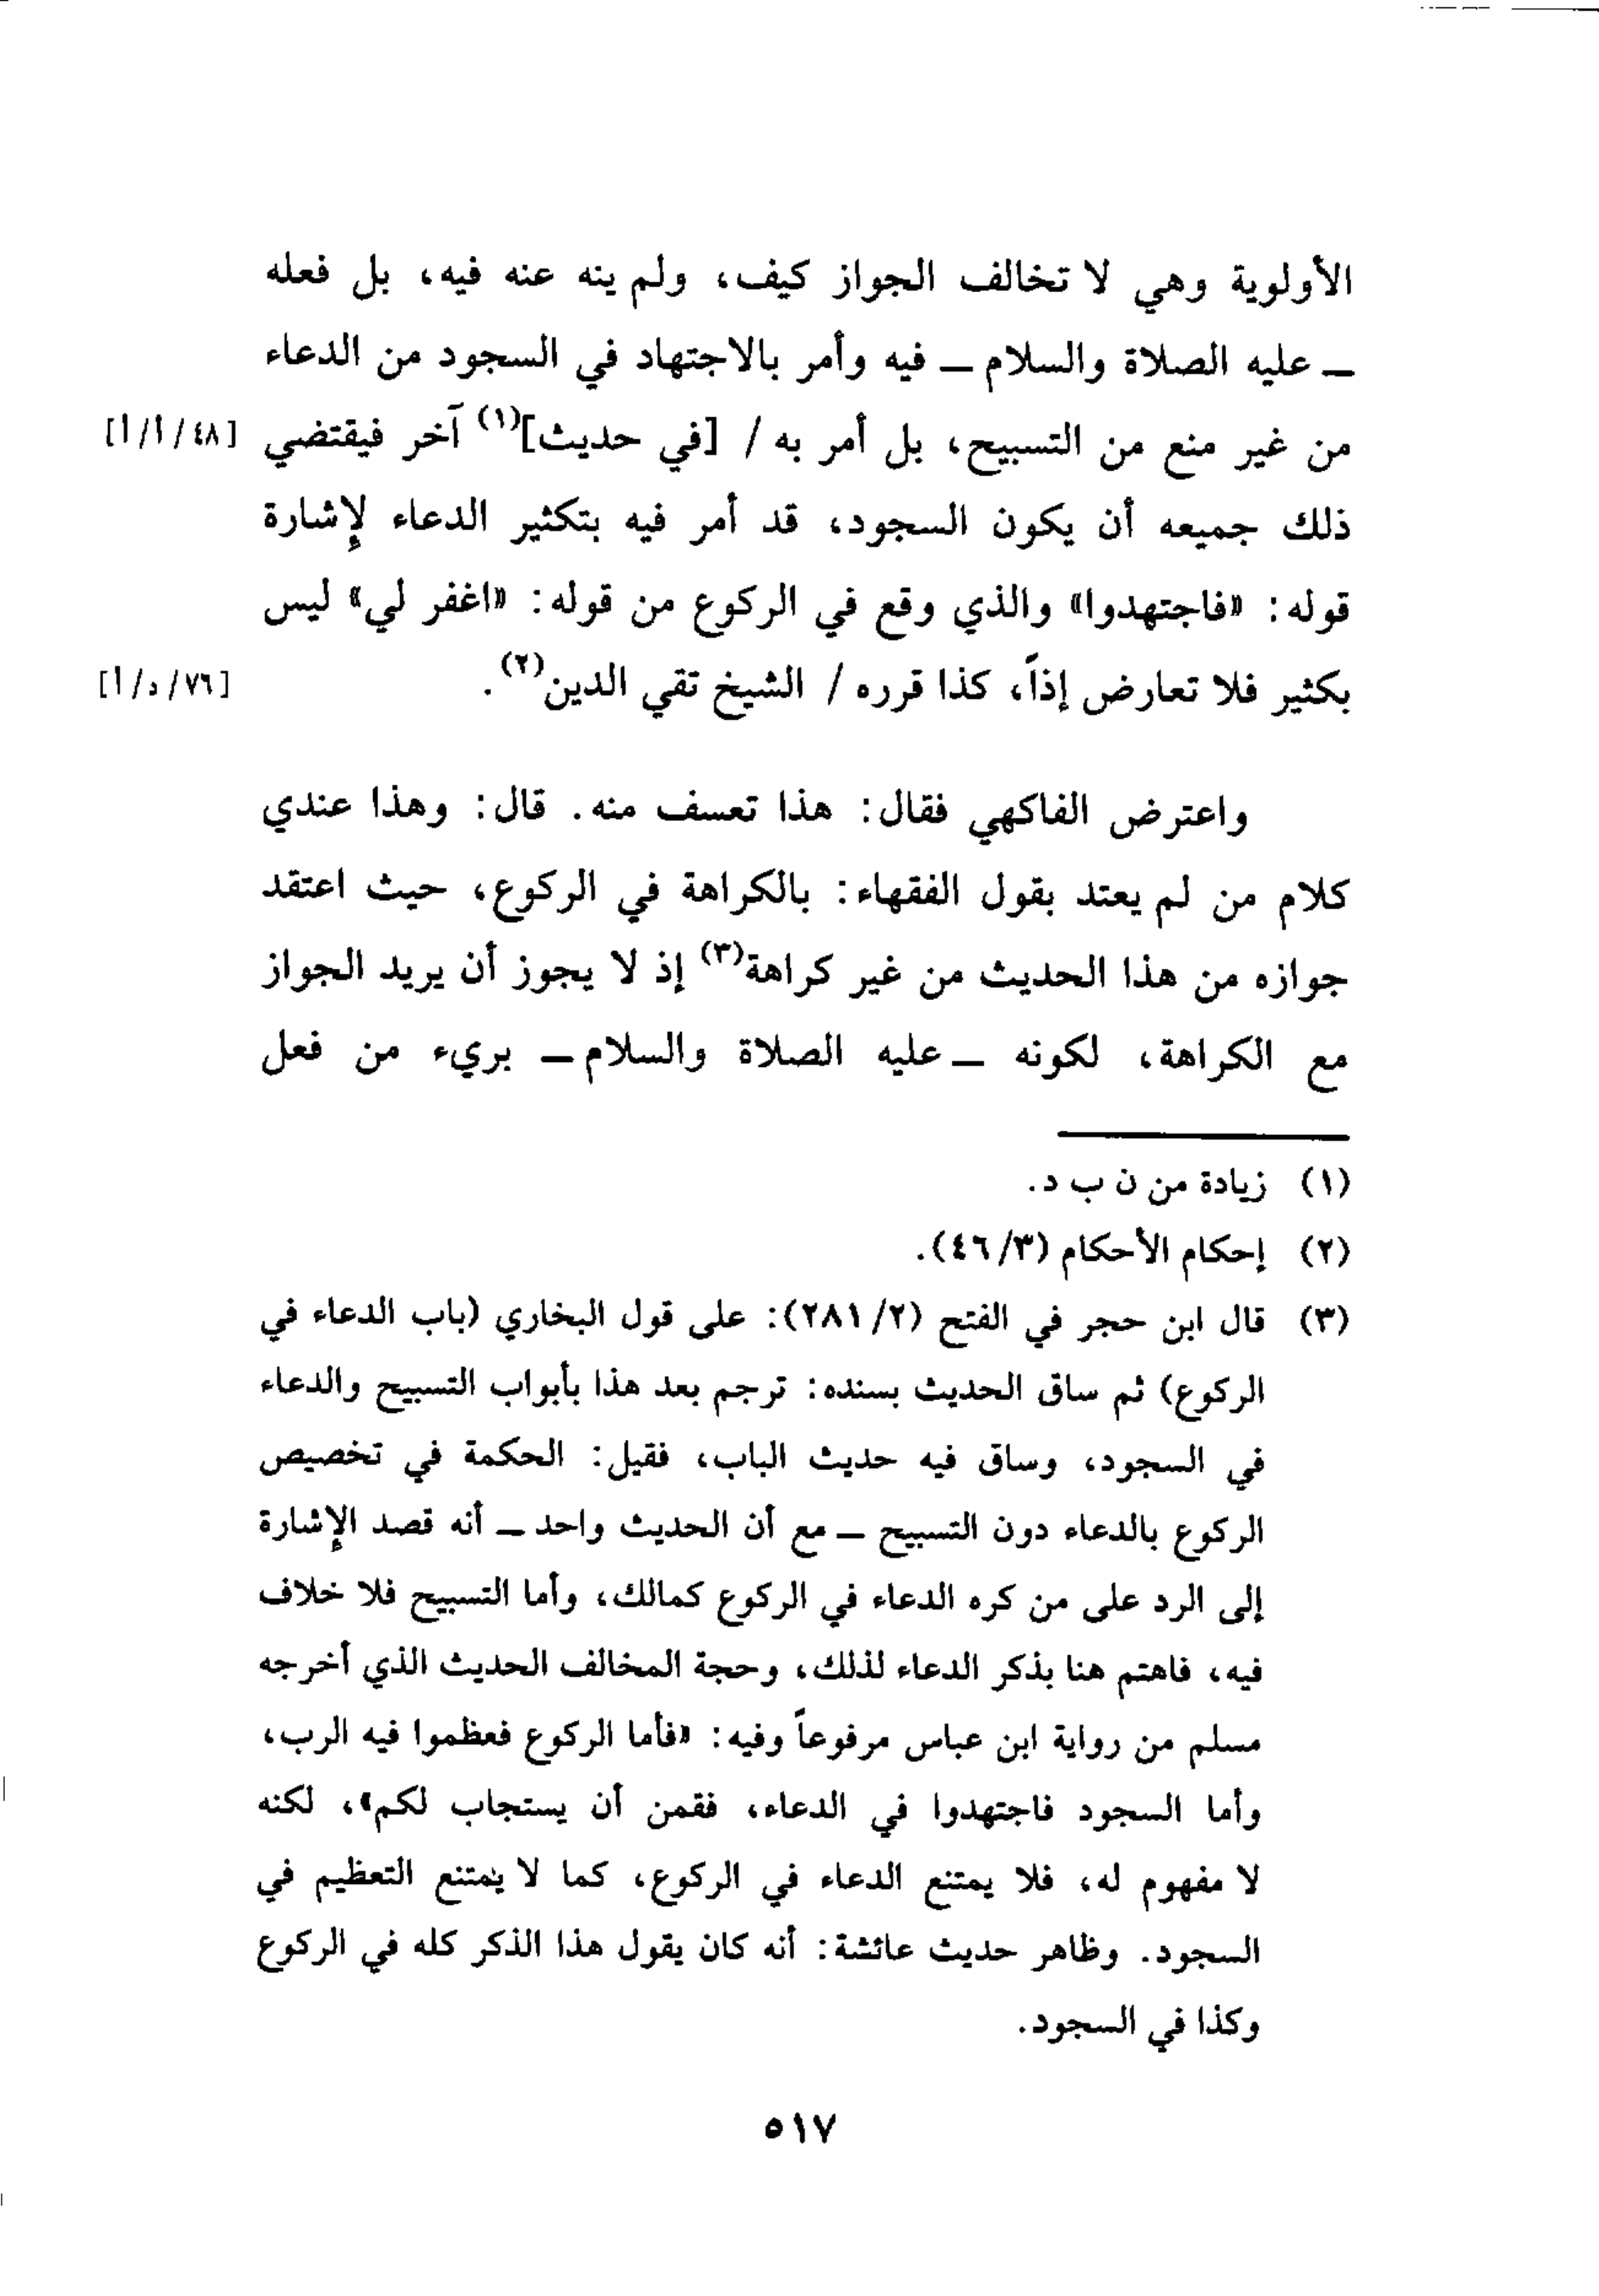 الأولوية وهي لا تخالف الجواز كيف، ولم ينه عنه فيه، بل فعله
ـ عليه الصلاة والسلام ـ فيه وأمر بالاجتهاد في السجود من الدعاء
من غير منع من التسبيح، بل أمر به / [في حديث](١) آخر فيقتضي [٤٨/أ/أ]
ذلك جميعه أن يكون السجود، قد أمر فيه بتكثير الدعاء لإشارة
قوله: «فاجتهدوا» والذي وقع في الركوع من قوله: «اغفر لي» ليس
بكثير فلا تعارض إذاً، كذا قرره / الشيخ تقي الدين(٢). [٧٦/د/أ]
واعترض الفاكهي فقال: هذا تعسف منه. قال: وهذا عندي
كلام من لم يعتد بقول الفقهاء: بالكراهة في الركوع، حيث اعتقد
جوازه من هذا الحديث من غير كراهة(٣) إذ لا يجوز أن يريد الجواز
مع الكراهة، لكونه ـ عليه الصلاة والسلام ـ بريء من فعل
(١) زيادة من ن ب د.
(٢) إحكام الأحكام (٤٦/٣).
(٣) قال ابن حجر في الفتح (٢٨١/٢): على قول البخاري (باب الدعاء في
الركوع) ثم ساق الحديث بسنده: ترجم بعد هذا بأبواب التسبيح والدعاء
في السجود، وساق فيه حديث الباب، فقيل: الحكمة في تخصيص
الركوع بالدعاء دون التسبيح ـ مع أن الحديث واحد ـ أنه قصد الإشارة
إلى الرد على من كره الدعاء في الركوع كمالك، وأما التسبيح فلا خلاف
فيه، فاهتم هنا بذكر الدعاء لذلك، وحجة المخالف الحديث الذي أخرجه
مسلم من رواية ابن عباس مرفوعاً وفيه: «فأما الركوع فعظموا فيه الرب،
وأما السجود فاجتهدوا في الدعاء، فقمن أن يستجاب لكم»، لكنه
لا مفهوم له، فلا يمتنع الدعاء في الركوع، كما لا يمتنع التعظيم في
السجود. وظاهر حديث عائشة: أنه كان يقول هذا الذكر كله في الركوع
وكذا في السجود.
٥١٧